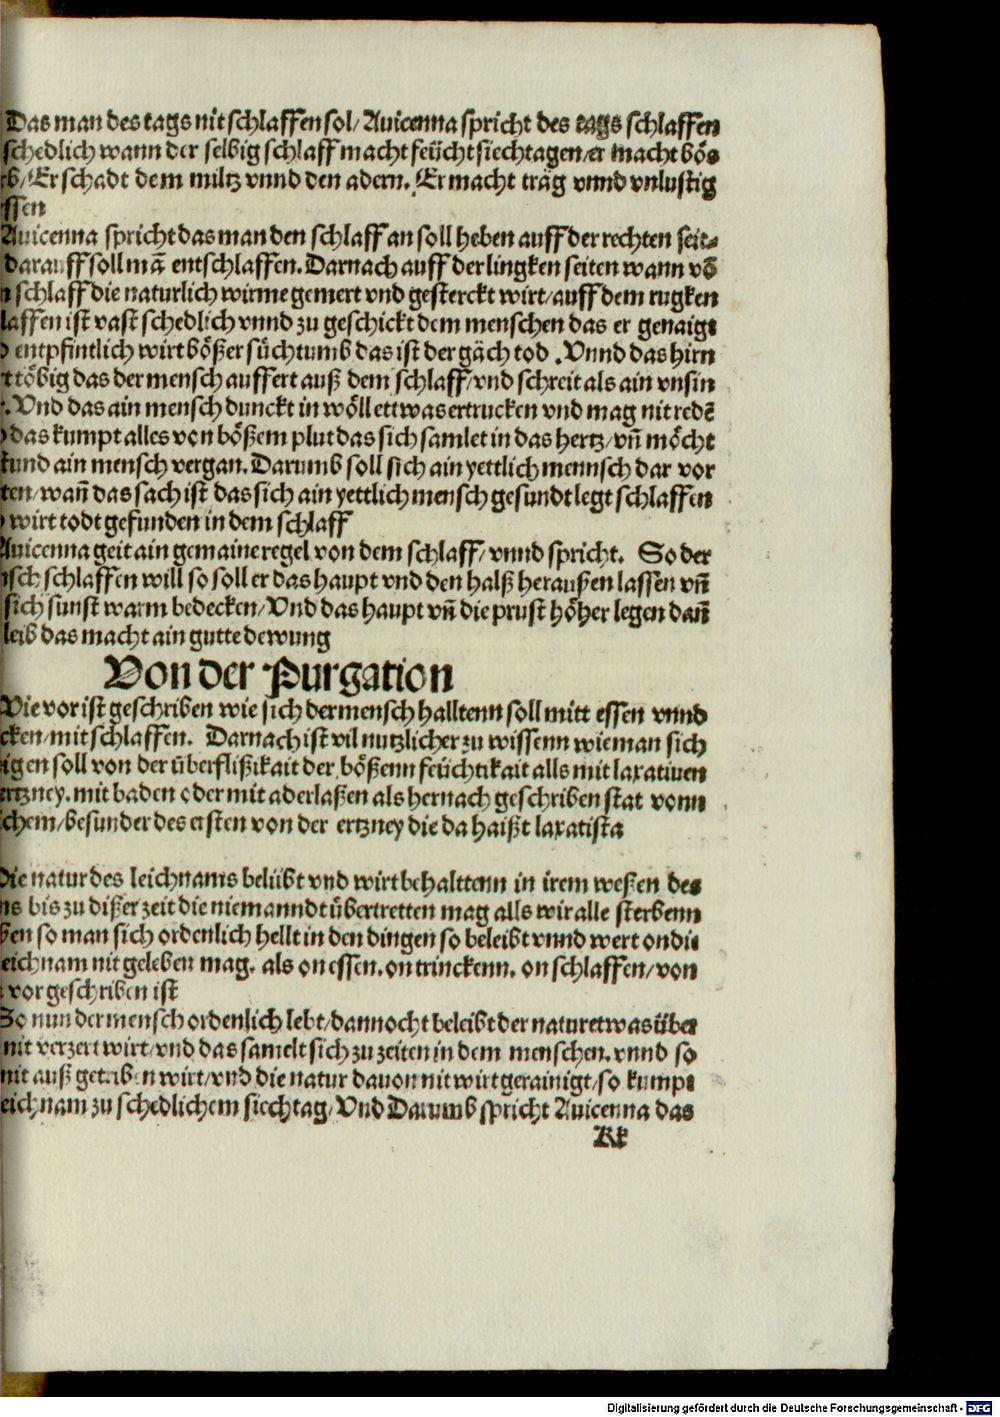 Das man des tags nit schlaffen sol/ Auicenna spricht des tags schlaffen
schedlich wann der selbig schlaff macht feücht siechtagen/er macht bös
b/Er schadt dem miltz vnnd den adern. Er macht träg vnnd vnlustig
ssen
Auicenna spricht das man den schlaff an soll heben auff der rechten seit⸗
darauff soll mā entschlaffen. Darnach auff der lingken seiten wann vō
schlaff die naturlich wirme gemert vnd gesterckt wirt/auff dem rugken
laffen ist vast schedlich vnnd zu geschickt dem menschen das er genaigt
entpfintlich wirt bößer süchtumb das ist der gäch tod. Vnnd das hirn
t töbig das der mensch auffert auß dem schlaff/vnd schreit als ain vnsin
. Vnd das ain mensch dunckt in wöll ettwas ertrucken vnd mag nit redē
das kumpt alles von bößem plut das sich samlet in das hertz/vn̄ möcht
kund ain mensch vergan. Darumb soll sich ain yettlich mennsch dar vor
ten/wan̄ das sach ist das sich ain yettlich mensch gesundt legt schlaffen
wirt todt gefunden in dem schlaff
Auicenna geit ain gemaine regel von dem schlaff/vnnd spricht. So der
sch schlaffen will so soll er das haupt vnd den halß heraußen lassen vn̄
sich sunst warm bedecken/Vnd das haupt vn̄ die prust höher legen dan̄
leib das macht ain gutte dewung
Von der Purgation
Wie vor ist geschriben wie sich der mensch halltenn soll mitt essen vnnd
cken/mit schlaffen. Darnach ist vil nutzlicher zu wissenn wie man sich
igen soll von der überflißikait der bößenn feüchtikait alls mit laxatiuen
ertzney. mit baden oder mit aderlaßen als hernach geschriben stat vonn
chem/besunder des ersten von der ertzney die da haißt laxatista
Die natur des leichnams belübt vnd wirt behalttenn in irem weßen des
ns bis zu dißer zeit die niemanndt übertretten mag alls wir alle sterbenn
ßen so man sich ordenlich hellt in den dingen so beleibt vnnd wert on die
eichnam nit geleben mag. als on essen. on trinckenn. on schlaffen/von
vor geschriben ist
So nun der mensch ordenlich lebt/dannocht beleibt der natur etwas über
nit verzert wirt/vnd das samelt sich zu zeiten in dem menschen. vnnd so
nit auß getriben wirt/vnd die natur dauon nit wirt gerainigt/so kumpt
eichnam zu schedlichem siechtag/Vnd Darumb spricht Auicenna das
Kk
Digitalisierung gefördert durch die Deutsche Forschungsgemeinschaft - DFG